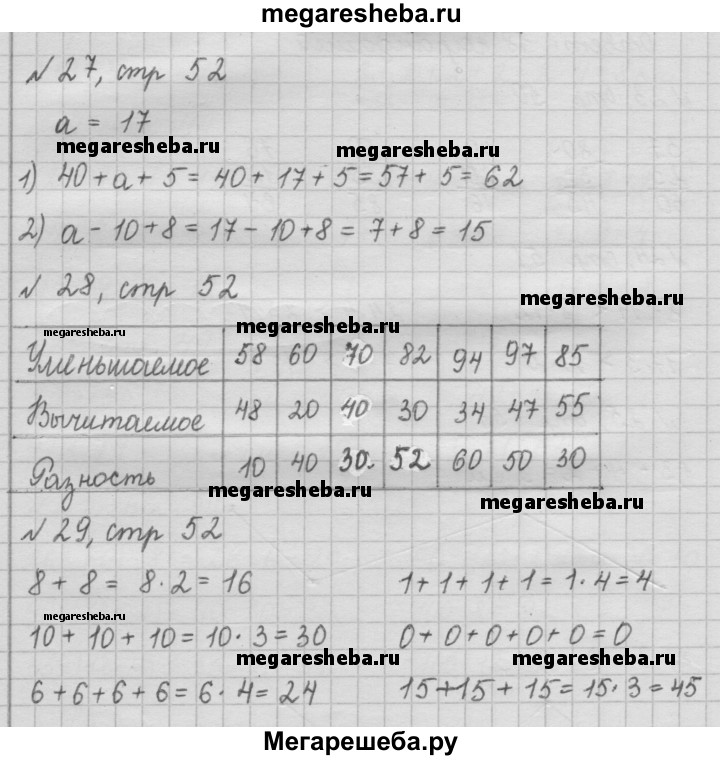 megaresheba.ru
N 27, стр 52
a = 17
megaresheba.ru megaresheba.ru
1) 40 + a + 5 = 40 + 17 + 5 = 57 + 5 = 62
2) a - 10 + 8 = 17 - 10 + 8 = 7 + 8 = 15
N 28, стр 52
megaresheba.ru
megaresheba.ru megaresheba.ru
Уменьшаемое 58 60 70 82 94 97 85
Вычитаемое 48 20 40 30 34 47 55
Разность 10 40 30. 52 60 50 30
megaresheba.ru megaresheba.ru
N 29, стр 52
8 + 8 = 8 · 2 = 16 1 + 1 + 1 + 1 = 1 · 4 = 4
megaresheba.ru
10 + 10 + 10 = 10 · 3 = 30 0 + 0 + 0 + 0 + 0 = 0
megaresheba.ru megaresheba.ru
6 + 6 + 6 + 6 = 6 · 4 = 24 15 + 15 + 15 = 15 · 3 = 45
Мегарешеба.ру